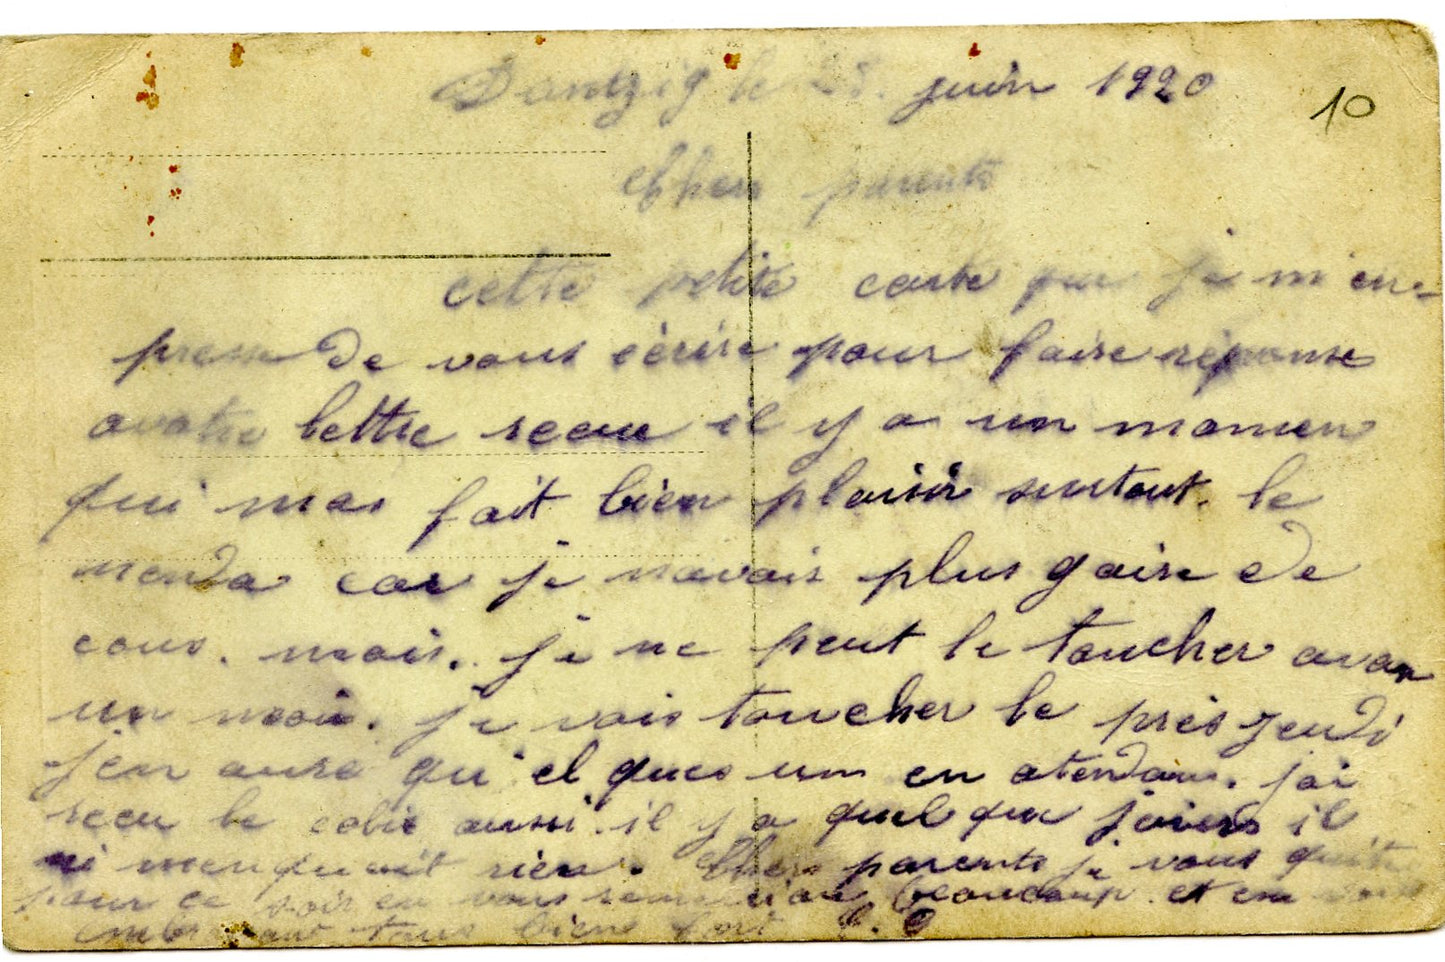 Dantzig le 28 juin 1920
10
Chers parents
cette petite carte que je m'en-
presse de vous écrire pour faire réponse
avotre lettre recue il y a un momen
qui mas fait bien plaisir surtout. le
menda car je navais plus gaire de
cous. mais. je ne peut le toucher avan
un mois. je vais toucher le près jeudi
j'en aure qu'el ques um en atendan. jai
recu le colie aussi. il y a quel que jours il
ni menquait rien. Chers parents je vous quitte
pour ce soir en vous remerciant beaucoup. et en vous
embrassant tous biens fort